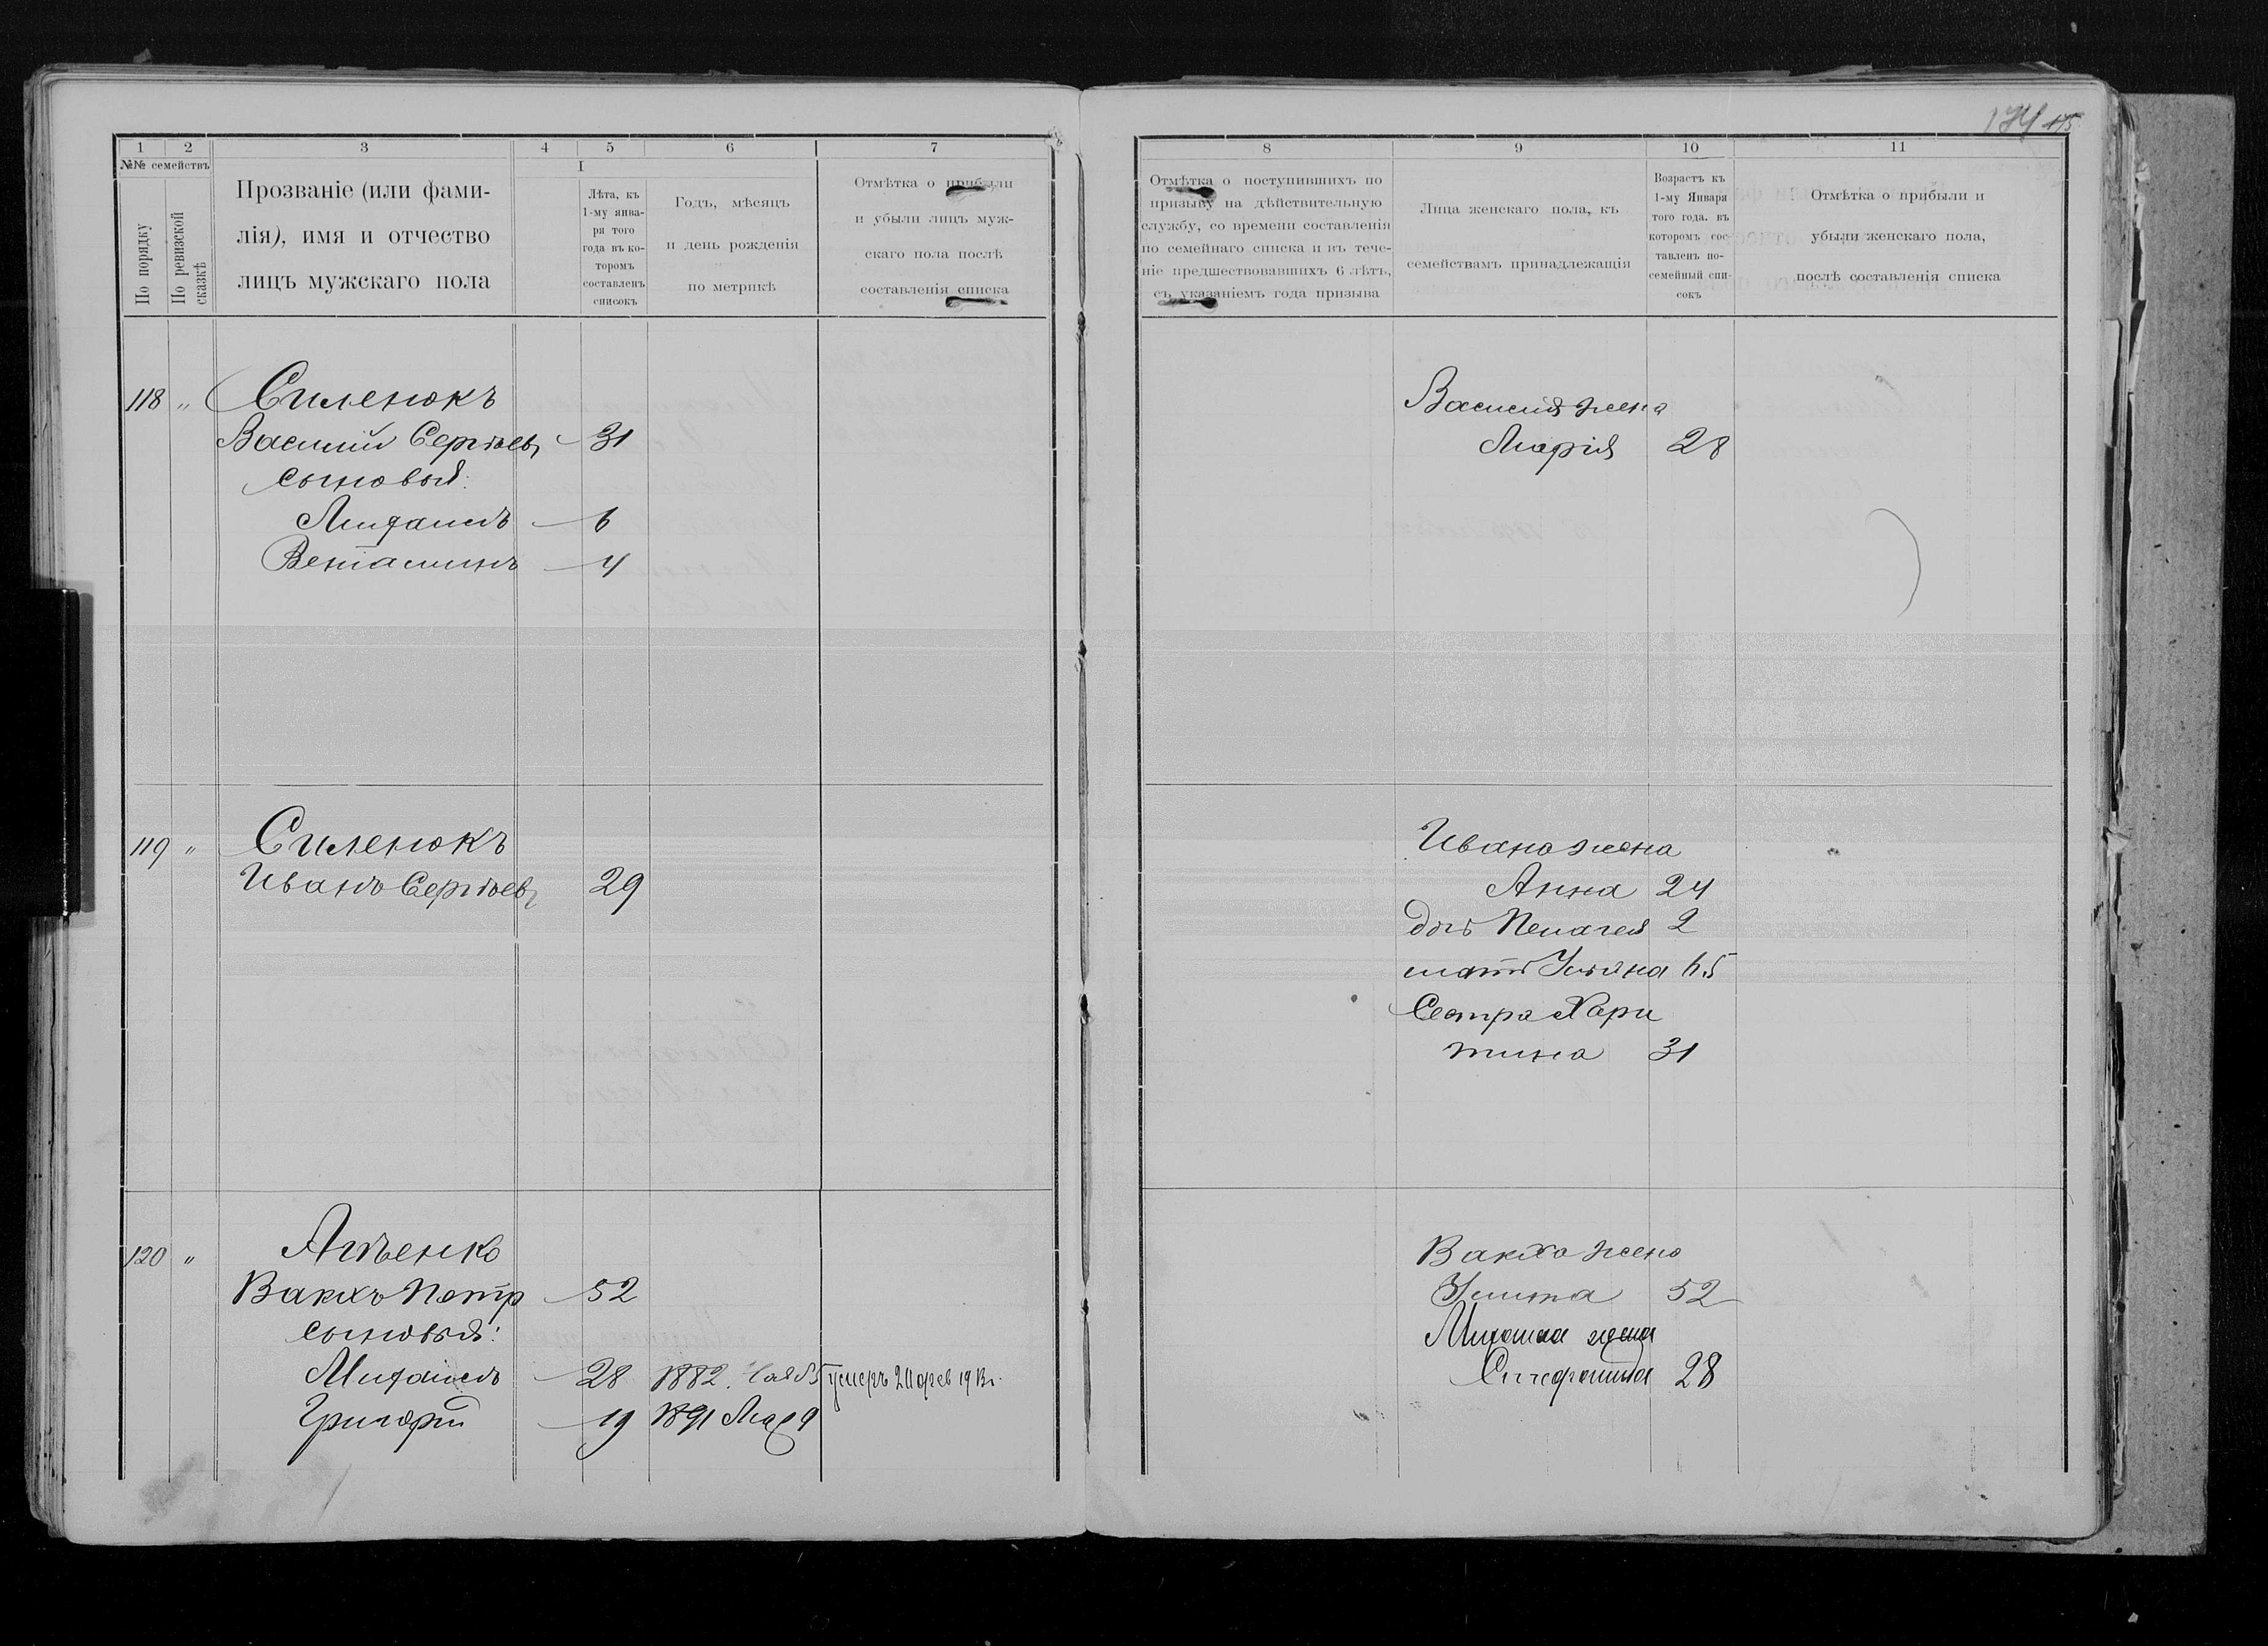 174 175
1 2 3 4 5 6 7
№№ семействъ
I
По порядку
По ревизской сказкѣ
Прозваніе (или фами-
лія), имя и отчество
лицъ мужскаго пола
Лѣта, къ
1-му янва-
ря того
года въ ко-
торомъ
составленъ
списокъ
Годъ, мѣсяцъ
и день рожденія
по метрикѣ
Отмѣтка о прибыли
и убыли лицъ муж-
скаго пола послѣ
составленія списка
118 " Силенюкъ
Василій Сергѣев 31
сыновья:
Михаилъ 6
Веніаминъ 4
119 " Силенюкъ
Иванъ Сергѣев 29
120 "
Вакхъ Петр 52
сыновья:
Михаилъ 28 1882 умеръ 1913 г.
Григорій 19 1891 9
8 9 10 11
Отмѣтка о поступившихъ по
призыву на дѣйствительную
службу, со времени составленія
по семейнаго списка и въ тече-
ніе предшествовавшихъ 6 лѣтъ,
съ указаніемъ года призыва
Лица женскаго пола, къ
семействамъ принадлежащія
Возрастъ къ
1-му Января
того года. въ
которомъ сос-
тавленъ по-
семейный спи-
сокъ
Отмѣтка о прибыли и
убыли женскаго пола,
послѣ составленія списка
Василія жена
Марія 28
Ивана жена
Анна 24
дочь Пелагея 2
мать Ульяна 65
Сестра Хари
тина 31
Вакха жена
Улита 52
Михаила жена
28